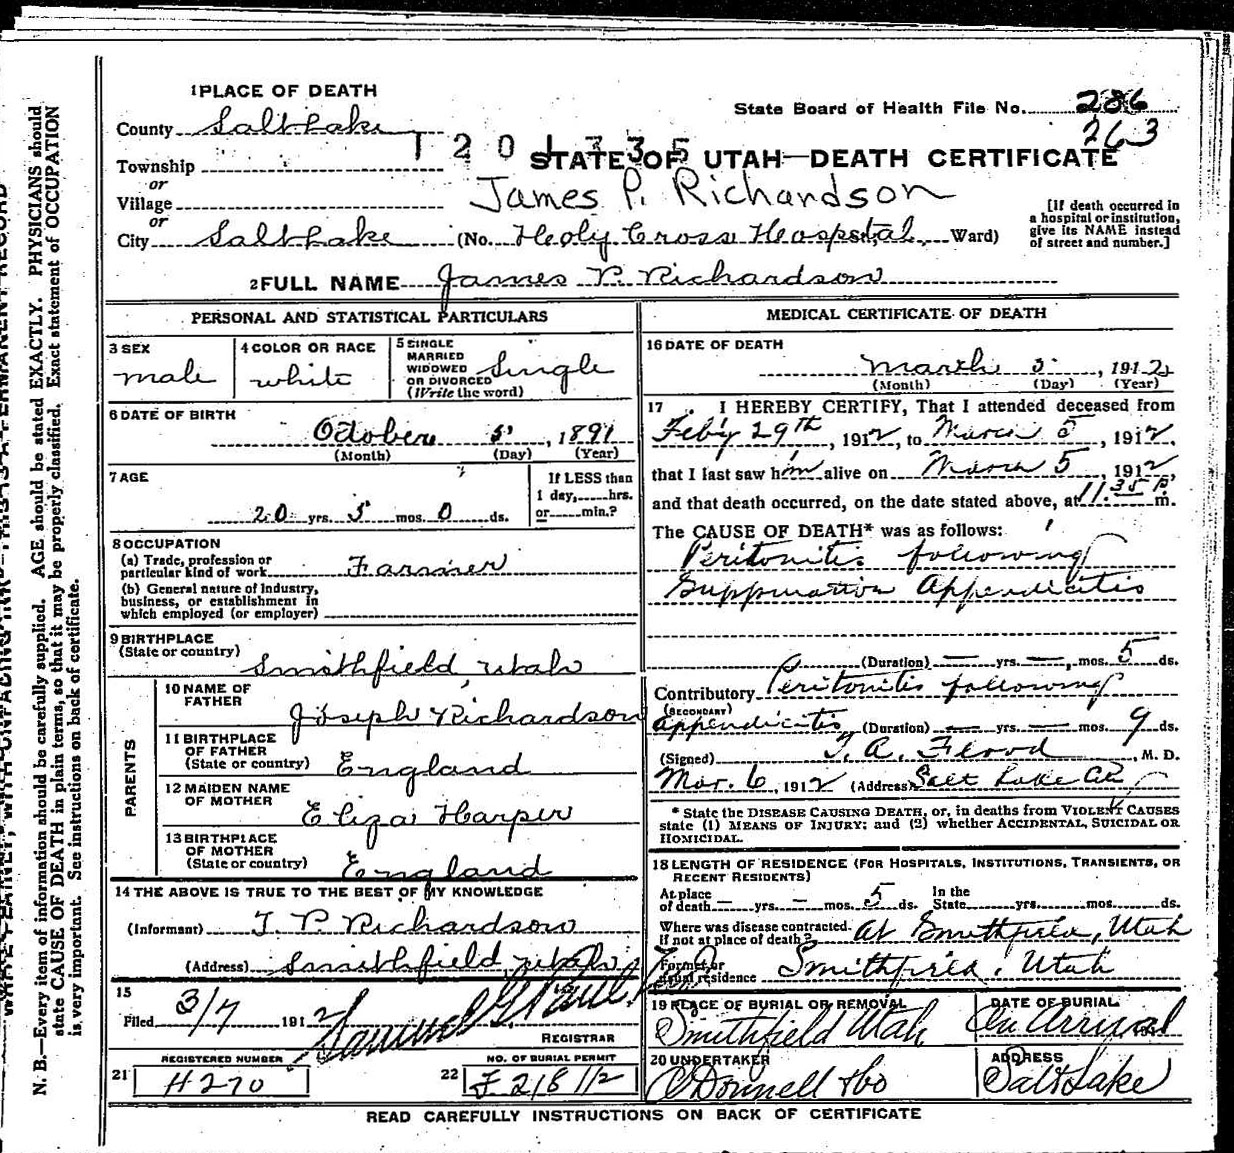 1 PLACE OF DEATH
State Board of Health File No. 286
263
County Salt Lake
1201335
STATE OF UTAH—DEATH CERTIFICATE
Township
or
Village
James P. Richardson
or
City Salt Lake (No. Holy Cross Hospital Ward)
[If death occurred in
a hospital or institution,
give its NAME instead
of street and number.]
2 FULL NAME James P. Richardson
PERSONAL AND STATISTICAL PARTICULARS
3 SEX
male
4 COLOR OR RACE
white
5 SINGLE
MARRIED
WIDOWED
OR DIVORCED
(Write the word)
Single
6 DATE OF BIRTH
October 5, 1891
(Month) (Day) (Year)
7 AGE
20 yrs. 5 mos. 0 ds.
If LESS than
1 day, hrs.
or min.?
8 OCCUPATION
(a) Trade, profession or
particular kind of work Farmer
(b) General nature of Industry,
business, or establishment in
which employed (or employer)
9 BIRTHPLACE
(State or country)
Smithfield, Utah
PARENTS
10 NAME OF
FATHER
Joseph Richardson
11 BIRTHPLACE
OF FATHER
(State or country) England
12 MAIDEN NAME
OF MOTHER
Eliza Harper
13 BIRTHPLACE
OF MOTHER
(State or country) England
14 THE ABOVE IS TRUE TO THE BEST OF MY KNOWLEDGE
(Informant) T. P. Richardson
(Address) Smithfield, Utah
15
Filed 3/7 1912
REGISTRAR
REGISTERED NUMBER
21 H270
NO. OF BURIAL PERMIT
22
MEDICAL CERTIFICATE OF DEATH
16 DATE OF DEATH
March 5, 1912
(Month) (Day) (Year)
17 I HEREBY CERTIFY, That I attended deceased from
Feby 29th, 1912, to March 5, 1912,
that I last saw him alive on March 5, 1912,
and that death occurred, on the date stated above, at 11:35 P. m.
The CAUSE OF DEATH* was as follows:
Peritonitis following
Suppurative Appendicitis
(Duration) — yrs. —, mos. 5 ds.
Contributory Peritonitis following
(SECONDARY)
appendicitis (Duration) — yrs. — mos. 9 ds.
(Signed) T. A. Flood M. D.
Mar. 6, 1912 (Address) Salt Lake
* State the DISEASE CAUSING DEATH, or, in deaths from VIOLENT CAUSES
state (1) MEANS OF INJURY; and (2) whether ACCIDENTAL, SUICIDAL OR
HOMICIDAL.
18 LENGTH OF RESIDENCE (FOR HOSPITALS, INSTITUTIONS, TRANSIENTS, OR
RECENT RESIDENTS)
At place
of death — yrs. — mos. 5 ds.
In the
State yrs. mos. ds.
Where was disease contracted.
If not at place of death? At Smithfield, Utah
Former or
usual residence Smithfield, Utah
19 PLACE OF BURIAL OR REMOVAL
Smithfield Utah
DATE OF BURIAL
On Arrival
20 UNDERTAKER
O'Donnell & Co
ADDRESS
Salt Lake
READ CAREFULLY INSTRUCTIONS ON BACK OF CERTIFICATE
N. B.—Every item of information should be carefully supplied. AGE should be stated EXACTLY. PHYSICIANS should
state CAUSE OF DEATH in plain terms, so that it may be properly classified. Exact statement of OCCUPATION
is very important. See instructions on back of certificate.